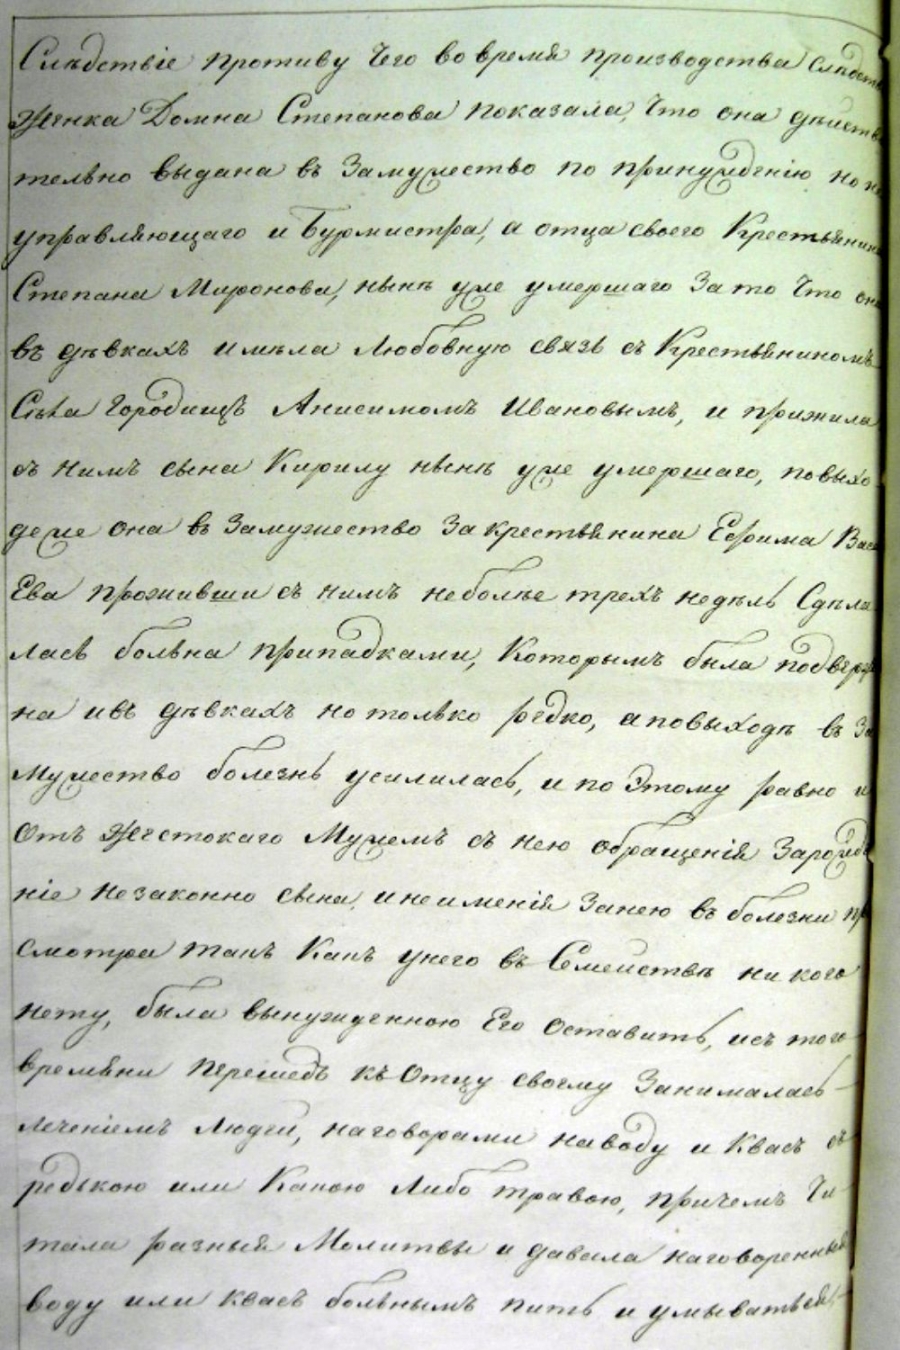 Следствіе противу чего во время производства следств
женка Домна Степанова показала, что она дѣйств
тельно выдана въ замужество по принужденію но не
управляющаго и Бурмистра, а отца своего Крестьянина
Степана Миронова, нынѣ уже умершаго за то что она
въ дѣвкахъ имѣла любовную связь съ Крестьяниномъ
Села Городищъ Анисимомъ Ивановымъ, и прижила
съ нимъ сына Кирилу нынѣ уже умершаго, по выхо
де же она въ замужество за крестьянина Ефима Васи
Ева проживши съ нимъ неболѣе трехъ недѣль Сдѣла
лась больна припадками, Которымъ была подверже
на и въ дѣвкахъ но только рѣдко, а по выходѣ въ за
мужество болезнь усилилась, и по этому равно и
отъ жестокаго Мужемъ съ нею обращенія за рожде
ніе незаконно сына, и неименія за нею въ болезни при
смотра такъ Какъ у него въ Семействѣ ни кого
нету, была вынужденною Его оставить, и съ того
времяни перешедъ къ Отцу своему Занималась
леченіемъ людей, наговорами на воду и Квасъ съ
редькою или Какою либо травою, причемъ Чи
тала разныя Молитвы и давала наговоренныя
воду или квасъ больнымъ пить и умыватьсья,